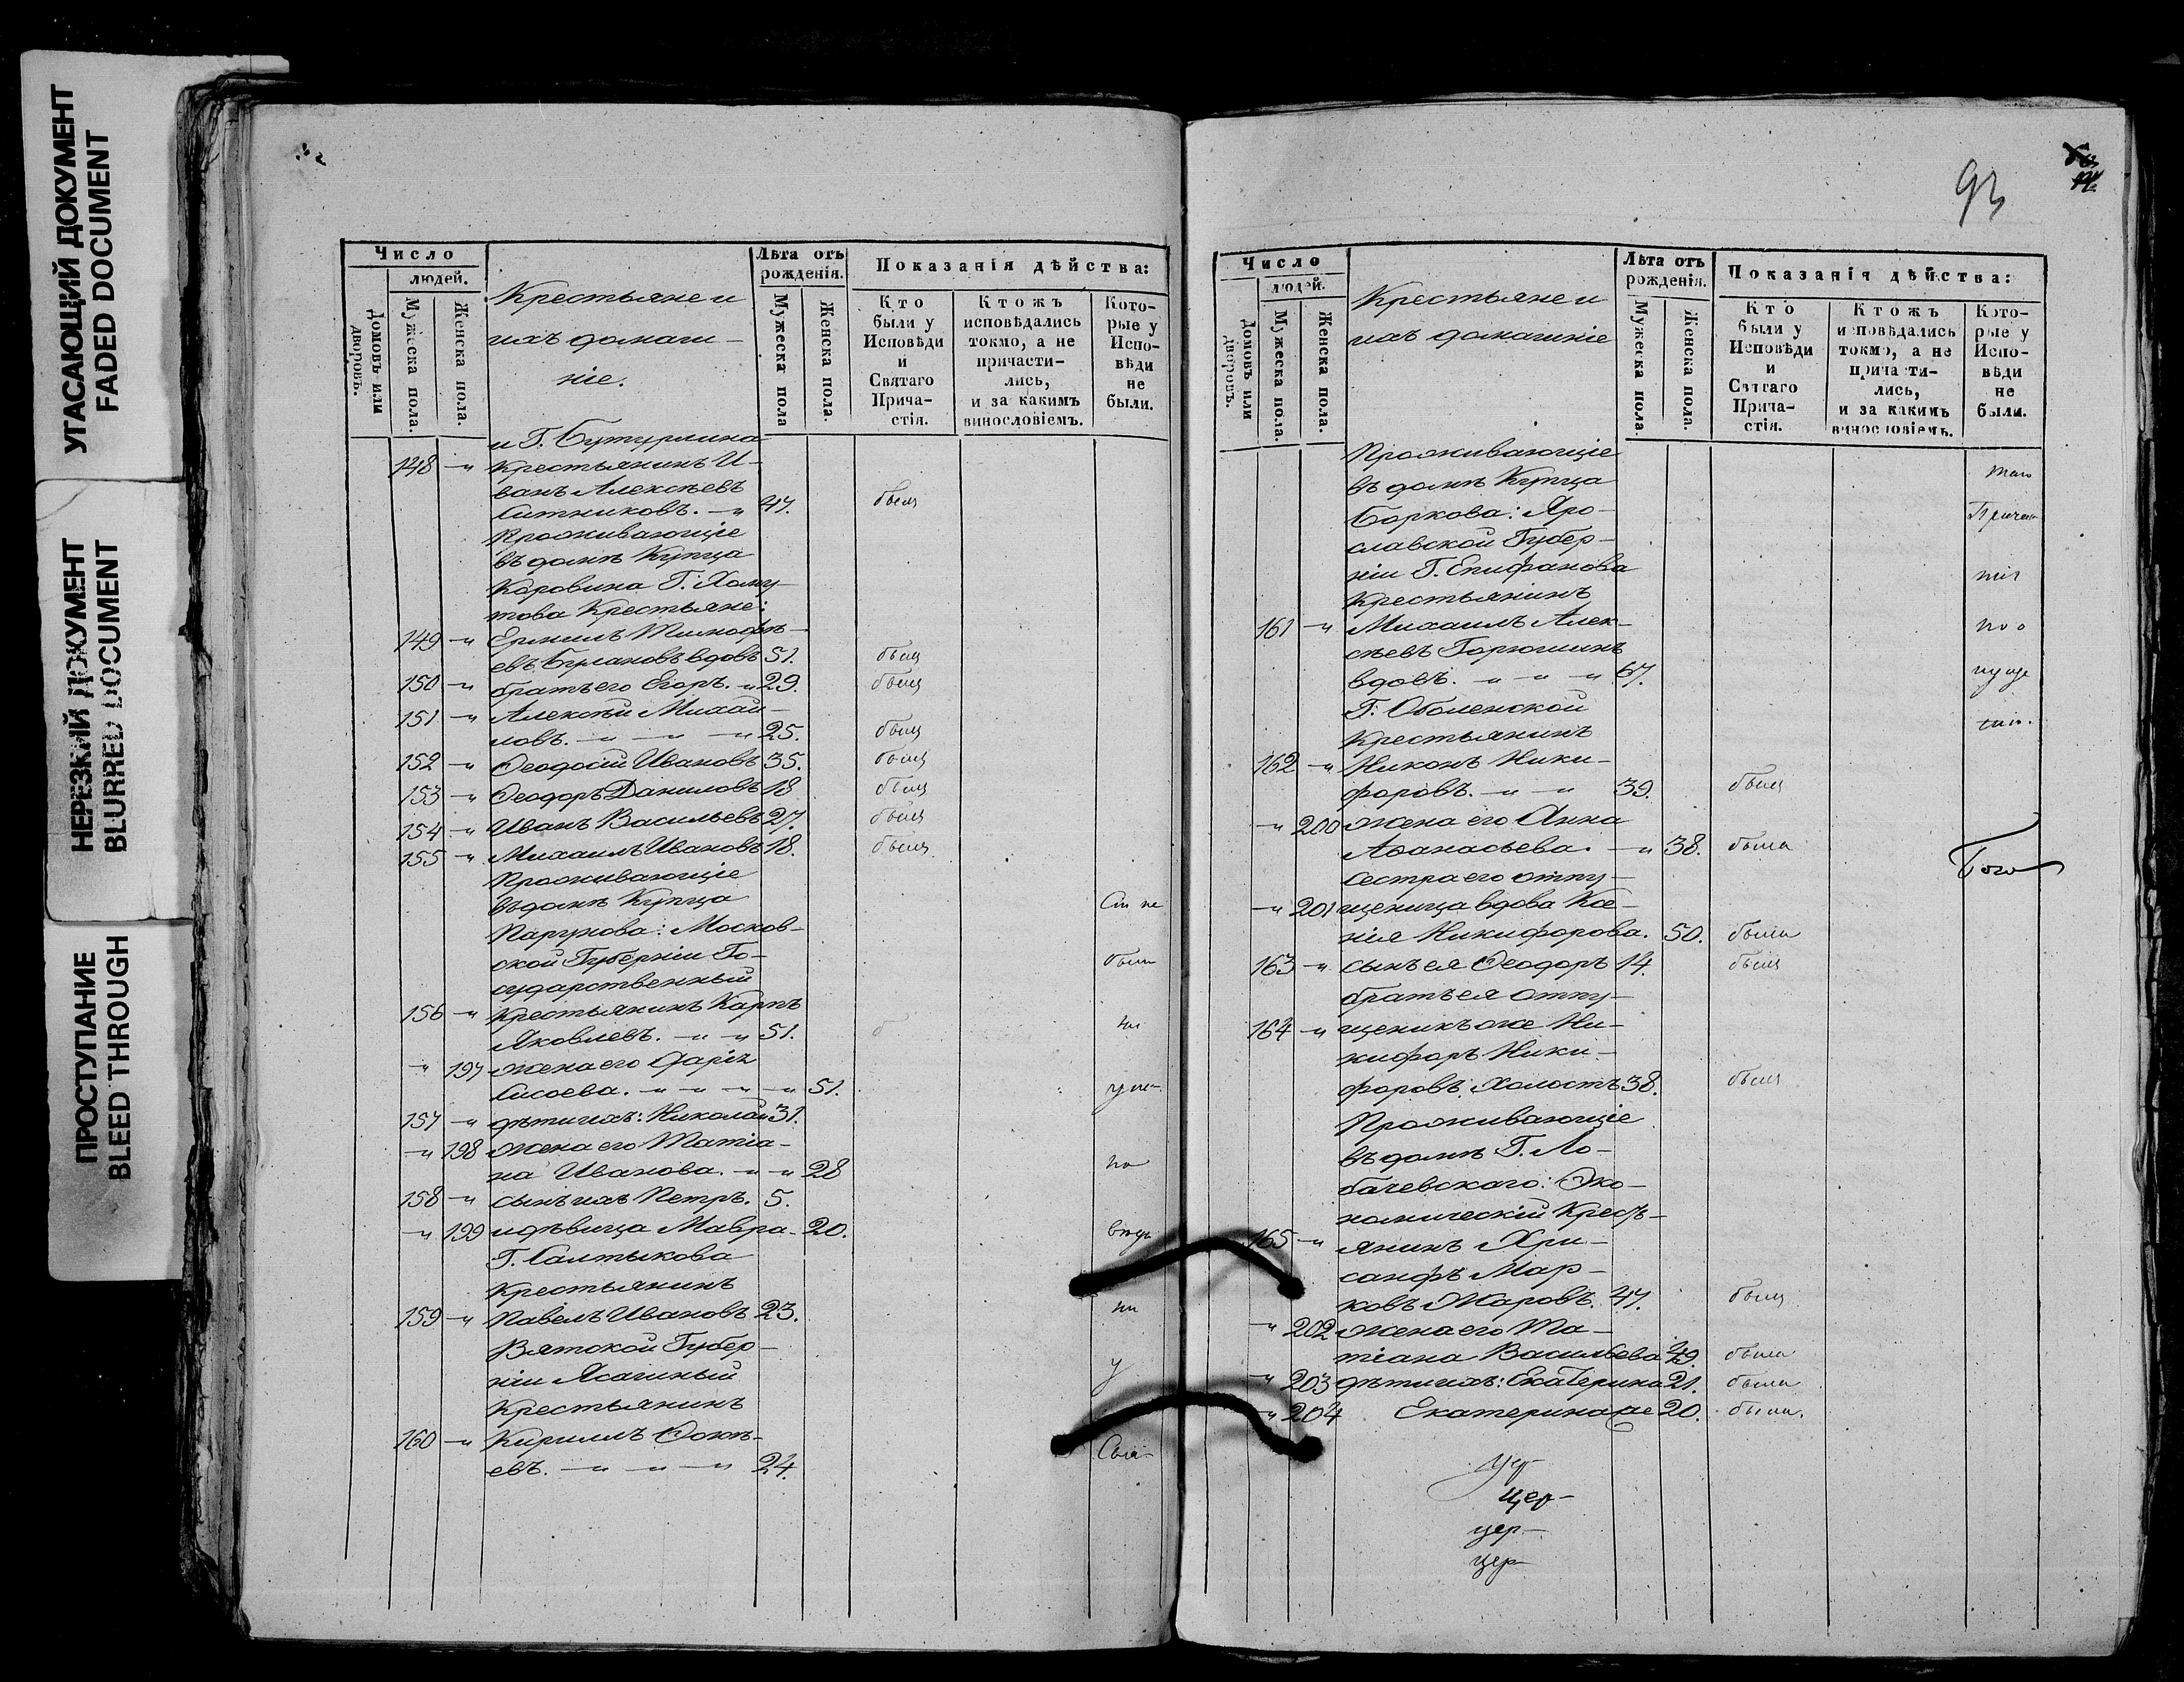 УГАСАЮЩИЙ ДОКУМЕНТ
FADED DOCUMENT
НЕРЕЗКИЙ ДОКУМЕНТ
BLURRED DOCUMENT
ПРОСТУПАНИЕ
BLEED THROUGH
Число
людей.
Домовъ или дворовъ.
Мужеска пола.
Женска пола.
Крестьяне и
ихъ домаш-
ніе.
Лѣта отъ рожденія.
Мужеска пола
Женска пола.
Показанія дѣйства:
Кто были у Исповѣди и Святаго Прича-стія.
Ктожъ исповѣдались токмо, а не причасти-лись, и за какимъ винословіемъ.
Кото-рые у Испо-вѣди не были.
и Г. Бутурлина
148 -„ Крестьянинъ И-
ванъ Алексѣевъ
Ситниковъ. -„ 47. былъ
Проживающіе
въ домѣ Купца
Коровина Г. Хому-
това Крестьяне:
149 -„ Ермилъ Тимофѣ-
евъ вдовъ 51. былъ
150 -„ братъ его Егоръ. -„ 29. былъ
151 -„ Алексѣй Михай-
ловъ. -„ -„ 25. былъ
152 -„ Ѳеодосій Ивановъ 35. былъ
153 -„ Ѳеодоръ Даниловъ 18 былъ
154 -„ Иванъ Васильевъ 27. былъ
155 -„ Михаилъ Ивановъ 18. былъ
Проживающіе
въ домѣ Купца
Паргунова: Москов-
ской Губерніи Го-
сударственный
156 -„ Крестьянинъ Карпъ
Яковлевъ. -„ -„ 51.
-„ 197 жена его Дарія
Сисоева. -„ -„ -„ 51.
157 -„ дѣти ихъ: Николай 31.
-„ 198 жена его Татіа-
на Иванова. -„ -„ 28 по
158 -„ сынъ ихъ Петръ. 5.
-„ 199 и дѣвица Мавра. 20.
Г. Салтыкова
Крестьянинъ
159 -„ Павелъ Ивановъ 23.
Вятской Губер-
ніи Ясашный
Крестьянинъ
160 -„ Кириллъ Ѳокѣ-
евъ. -„ -„ -„ 24.
93
Число
людей.
Домовъ или дворовъ.
Мужеска пола.
Женска пола.
Крестьяне и
ихъ домашніе
Лѣта отъ рожденія.
Мужеска пола.
Женска пола.
Показанія дѣйства:
Кто были у Исповѣди и Святаго Прича-стія.
Ктожъ исповѣдались токмо, а не причасти-лись, и за какимъ винословіемъ.
Кото-рые у Испо-вѣди не были.
Проживающіе
въ домѣ Купца
Боркова: Яро-
славской Губер-
ніи Г. Епифанова
Крестьянинъ
161 -„ Михаилъ Алек-
сѣевъ Горюшинъ
вдовъ. -„ -„ -„ 67.
Г. Оболенской
Крестьянинъ
162 -„ Никонъ Ники-
форовъ. -„ -„ 39. былъ
-„ 200 жена его Анна
Аѳанасьева. -„ 38. была
Сестра его отпу-
-„ 201 щеница вдова Ксе-
нія Никифорова. 50. была
163 -„ сынъ ея Ѳеодоръ 14. былъ
братъ ея отпу-
164 -„ щеникъ же Ни-
кифоръ Ники-
форовъ. Холостъ 38. былъ
Проживающіе
въ домѣ Г. Ло-
бачевскаго: Эко-
номическій Крестъ-
165 -„ янинъ Хри-
санфъ Мар-
ковъ Жаровъ. 47. былъ
-„ 202 жена его Та-
тіана Васильева 49. была
-„ 203 дѣти ихъ: Екатерина 21. была
-„ 204 Екатерина же 20. была.
цер-
цер-
цер-